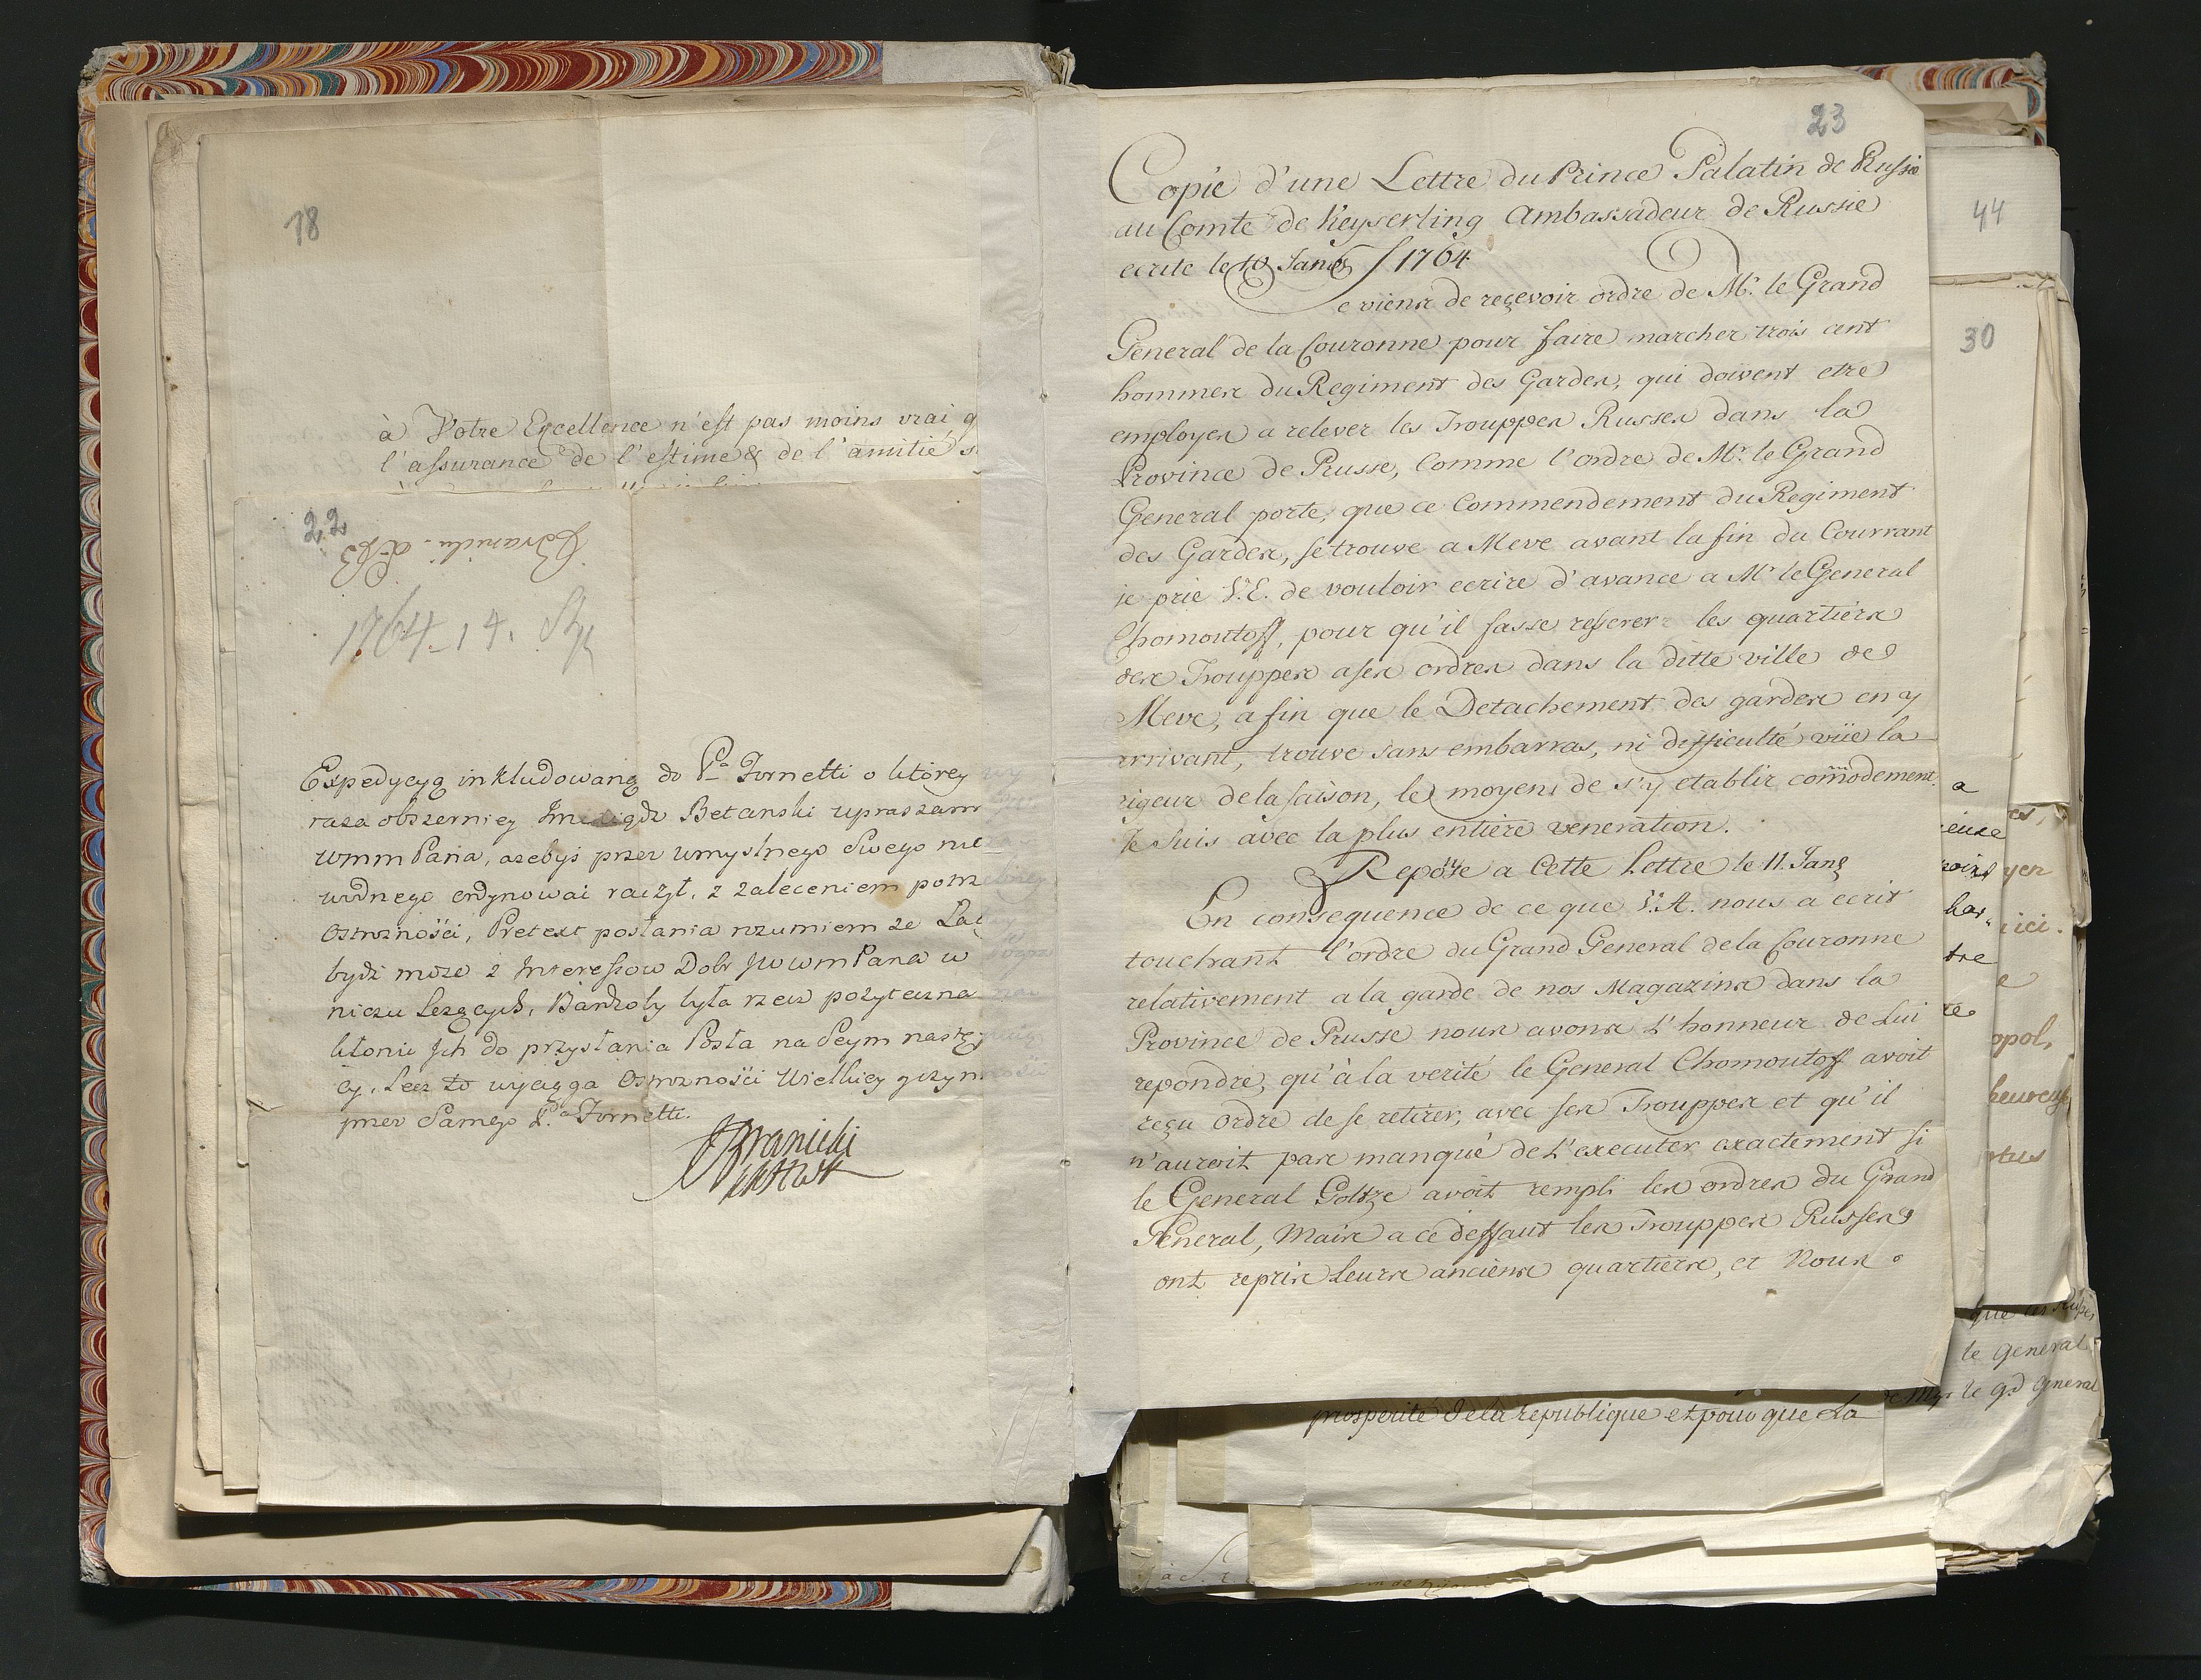 18
à Votre Excellence n'est pas moins vrai q
l'assurance de l'estime & de l'amitié
22
Branicki
1764 - 14.
Expedycyą inkludowaną do Pa Fornetti o ktorey
raza obszerniey Betanski upraszam
WmmPana, azebyś przez umyslnego Swego nie
wodnego ordynowai raczył, z zaleceniem potrz
Ostrozności, Pretext posłania rozumiem ze
bydź moze z Interessow Dobr JwWmPana w
niczu Lezących, Bardzoby była rzecz pozyteczna
kłonic Jch do przysłania Posła na Seym nastę
cy, Lecz to wyciąga Ostrozności Wielkiey
przez Samego P.a Fornetti.
Branicki
23
Copie d'une Lettre du Prince Palatin de Russie
au Comte de Keyserling Ambassadeur de Russie
ecrite le 10 Janr 1764
Je viens de reçevoir ordre de Mr. le Grand
General de la Couronne pour faire marcher trois cent
hommes du Regiment des Gardes, qui doivent etre
employes a relever les Trouppes Russes dans la
Province de Prusse, Comme l'ordre de Mr. le Grand
General porte, que ce Commendement du Regiment
des Gardes, se trouve a Meve avant la fin du Courrant
je prie V.E. de vouloir ecrire d'avance a Mr le General
Chomoutoff, pour qu'il fasse resserer les quartiers
des Trouppes a ses ordres dans la ditte ville de
Meve, a fin que le Detachement des gardes en y
arrivant, trouve sans embarras, ni difficulté vüe la
rigeur de la saison, les moyens de s'y etablir comodement.
Je suis avec la plus entiére veneration.
Repose a Cette Lettre le 11. Janr
En consequence de ce que V.A. nous a ecrit
touchant l'ordre du Grand General de la Couronne
relativement a la garde de nos Magazins dans la
Province de Prusse nous avons L'honneur de Lui
repondre, qu'à la verité le General Chomoutoff avoit
reçu ordre de se retirer, avec ses Trouppes et qu'il
n'auroit pas manqué de L'executer exactement si
le General Goltze avoit rempli les ordres du Grand
General, Mais a ce deffaut les Trouppes Russes
ont repris Leurs anciens quartiers, et Nous
prosperité de la republique et pour que la
44
30
a
tre
yer
ici.
e
opol,
que les
le General
le gd General